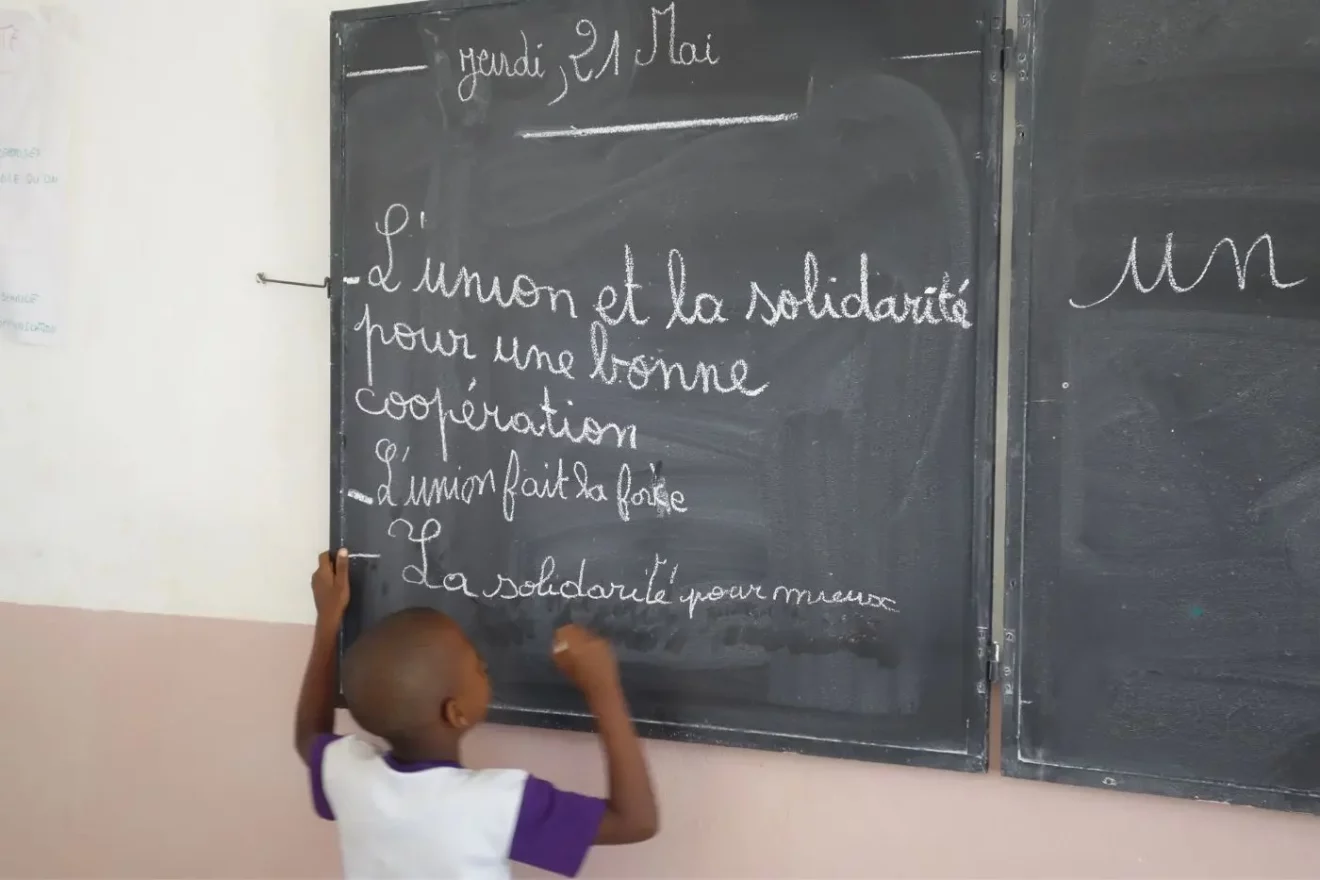 jeudi, 21 Mai
- L'union et la solidarité
pour une bonne
coopération
- L'union fait la force
- La solidarité pour mieux
un